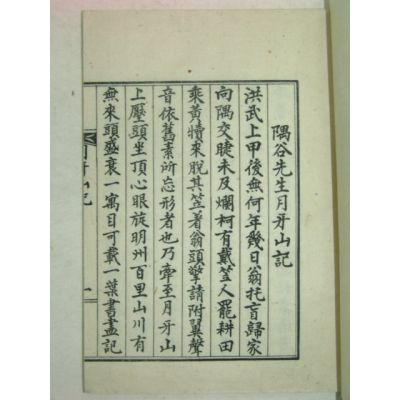 隅谷先生月牙山記
洪武上甲後無何年幾日翁托盲歸家
向隅交睫未及爛柯有戴笠人罷耕田
乘黃犢來脫其笠着翁頭擎請附翼聲
音依舊素所忘形者也乃牽至月牙山
上壓頭坐頂心眼旋明州百里山川有
無來頭盛衰一寓目可載一葉書畵記
月牙山記
一